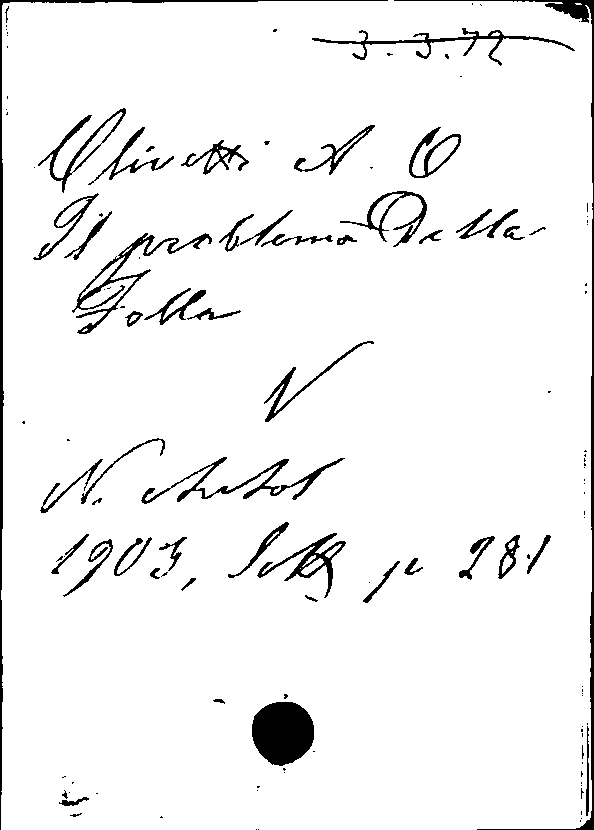 3.3.72
Olivetti A. O
Il problema Della
Folla
N. Antol
1903, p 281